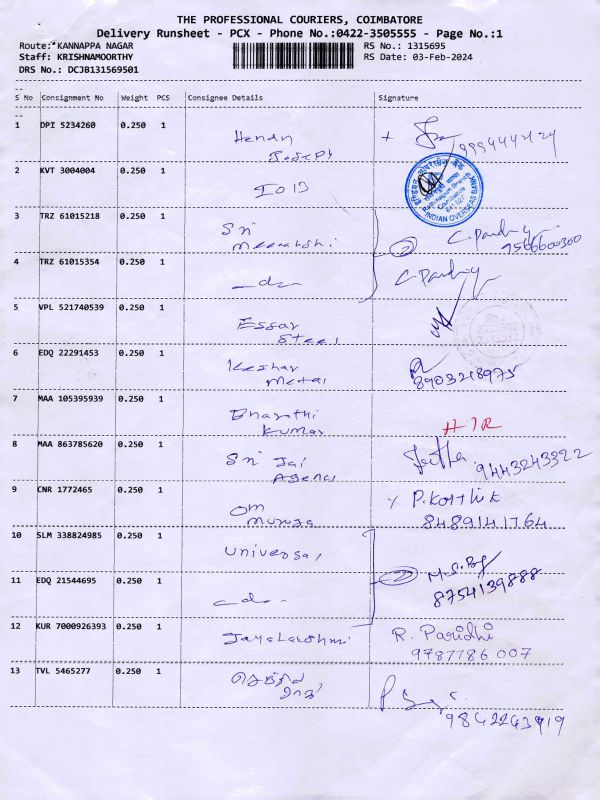 THE PROFESSIONAL COURIERS, COIMBATORE
Delivery Runsheet - PCX - Phone No.:0422-3505555 - Page No.:1
Route: KANNAPPA NAGAR RS No.: 1315695
Staff: KRISHNAMOORTHY RS Date: 03-Feb-2024
DRS No.: DCJB131569501
S No Consignment No Weight PCS Consignee Details Signature
1 DPI 5234260 0.250 1 Henry
Joseph
2 KVT 3004004 0.250 1 IOB
INDIAN OVERSEAS BANK
3 TRZ 61015218 0.250 1 Sri
Meenakshi C. Pandi
9566600300
4 TRZ 61015354 0.250 1 -do- C. Pandi
5 VPL 521740539 0.250 1 Essar
Steel
6 EDQ 22291453 0.250 1 Keshar
Metal 8903218975
7 MAA 105395939 0.250 1 Bharathi
Kumar
8 MAA 863785620 0.250 1 Sri Jai
Agency 9443243322
9 CNR 1772465 0.250 1 Om
Muruga P. Karthik
8489141764
10 SLM 338824985 0.250 1 Universal
11 EDQ 21544695 0.250 1 -do- 8754139888
12 KUR 7000926393 0.250 1 Jayalakshmi R. Paridhi
9787786007
13 TVL 5465277 0.250 1 செந்தில்
9842243919